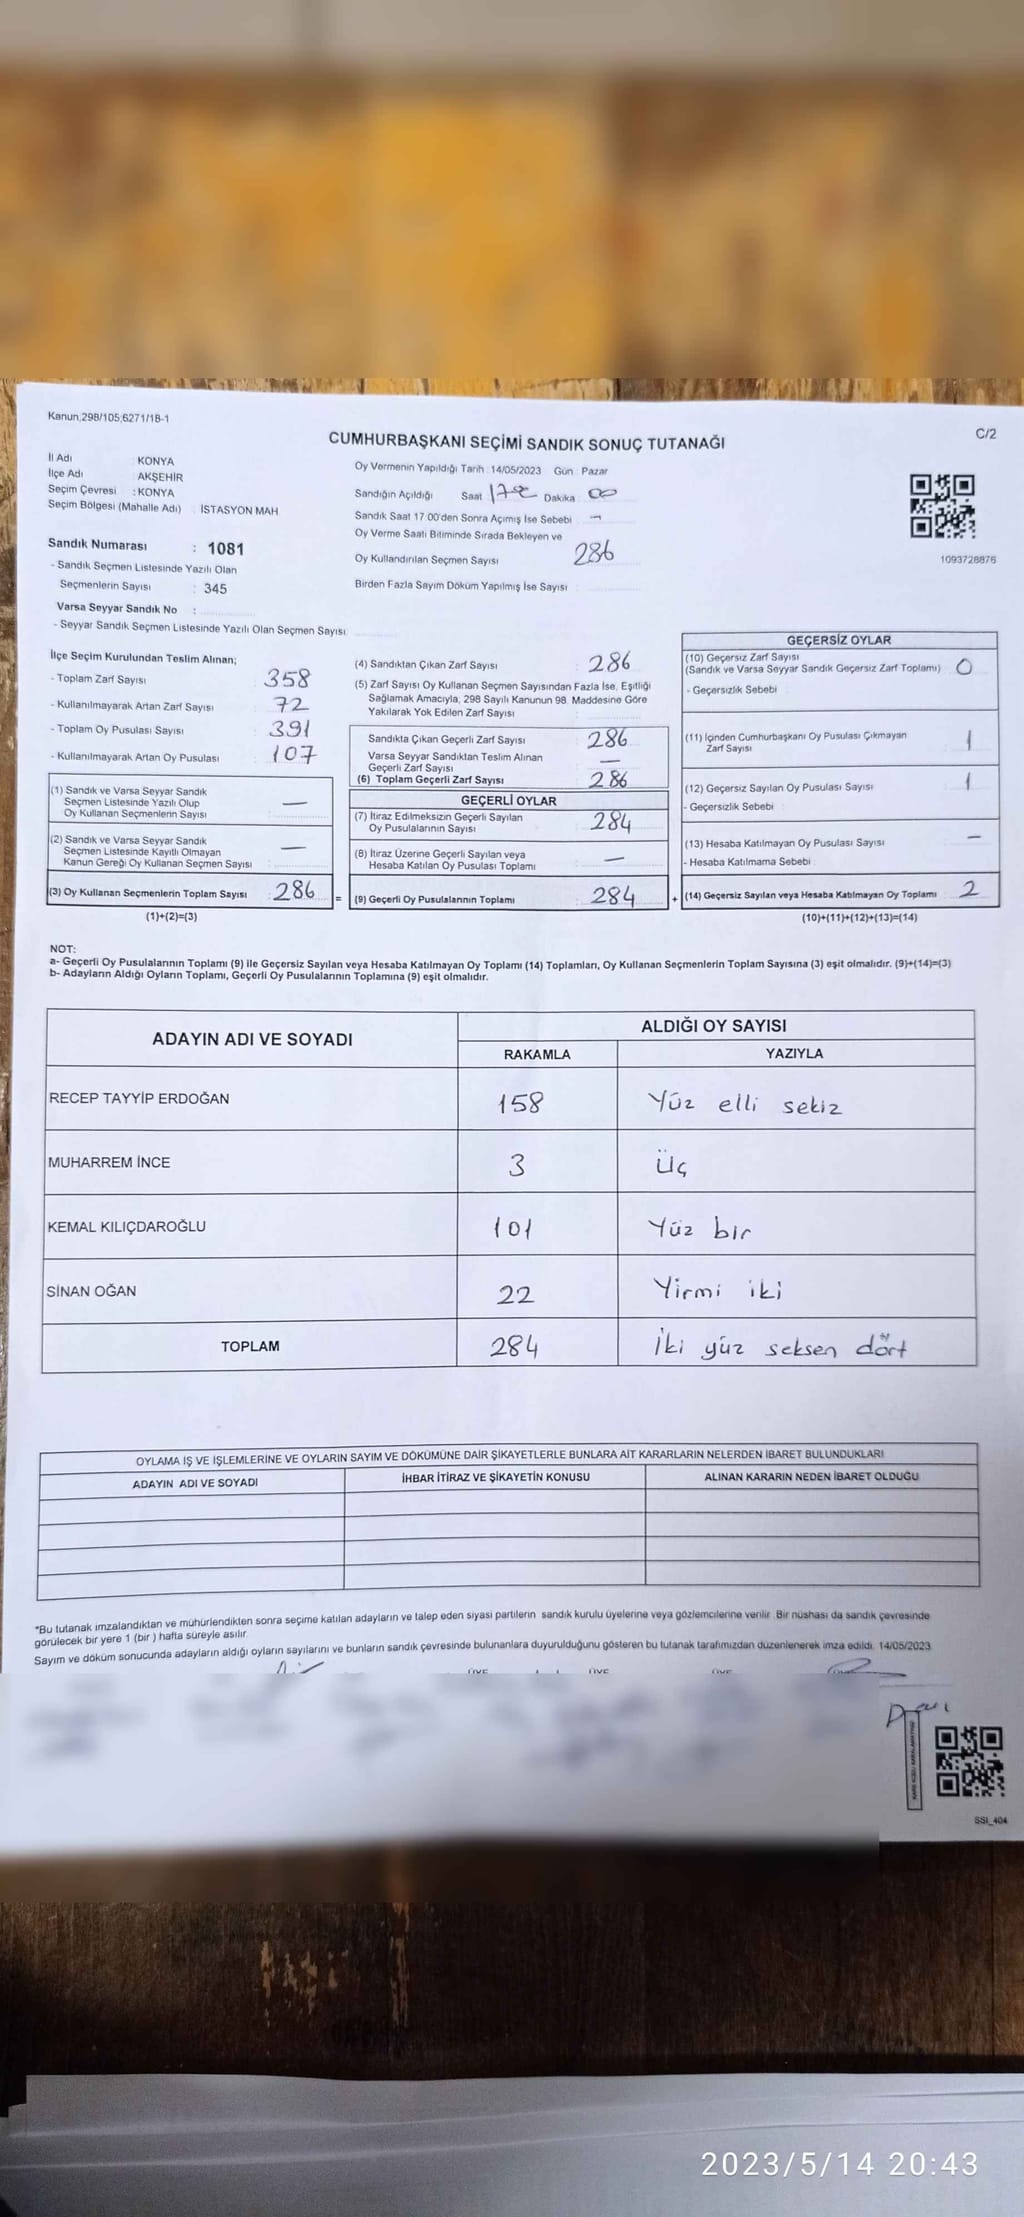 Kanun,298/105,6271/18-1
C/2
CUMHURBAŞKANI SEÇİMİ SANDIK SONUÇ TUTANAĞI
İl Adı : KONYA
İlçe Adı : AKŞEHİR
Seçim Çevresi : KONYA
Seçim Bölgesi (Mahalle Adı) İSTASYON MAH
Sandık Numarası : 1081
- Sandık Seçmen Listesinde Yazılı Olan
Seçmenlerin Sayısı : 345
Varsa Seyyar Sandık No :
- Seyyar Sandık Seçmen Listesinde Yazılı Olan Seçmen Sayısı
Oy Vermenin Yapıldığı Tarih : 14/05/2023 Gün : Pazar
Sandığın Açıldığı Saat Dakika 00
Sandık Saat 17.00'den Sonra Açımış İse Sebebi -
Oy Verme Saati Bitiminde Sırada Bekleyen ve
Oy Kullandırılan Seçmen Sayısı 286
Birden Fazla Sayım Döküm Yapılmış İse Sayısı :
1093728876
İlçe Seçim Kurulundan Teslim Alınan;
- Toplam Zarf Sayısı 358
- Kullanılmayarak Artan Zarf Sayısı 72
- Toplam Oy Pusulası Sayısı 391
- Kullanılmayarak Artan Oy Pusulası 107
(1) Sandık ve Varsa Seyyar Sandık
Seçmen Listesinde Yazılı Olup
Oy Kullanan Seçmenlerin Sayısı : —
(2) Sandık ve Varsa Seyyar Sandık
Seçmen Listesinde Kayıtlı Olmayan
Kanun Gereği Oy Kullanan Seçmen Sayısı : —
(3) Oy Kullanan Seçmenlerin Toplam Sayısı : 286 =
(1)+(2)=(3)
(4) Sandıktan Çıkan Zarf Sayısı : 286
(5) Zarf Sayısı Oy Kullanan Seçmen Sayısından Fazla İse, Eşitliği
Sağlamak Amacıyla, 298 Sayılı Kanunun 98. Maddesine Göre
Yakılarak Yok Edilen Zarf Sayısı :
Sandıkta Çıkan Geçerli Zarf Sayısı : 286
Varsa Seyyar Sandıktan Teslim Alınan
Geçerli Zarf Sayısı : —
(6) Toplam Geçerli Zarf Sayısı : 286
GEÇERLİ OYLAR
(7) İtiraz Edilmeksizin Geçerli Sayılan
Oy Pusulalarının Sayısı : 284
(8) İtiraz Üzerine Geçerli Sayılan veya
Hesaba Katılan Oy Pusulası Toplamı : —
(9) Geçerli Oy Pusulalarının Toplamı : 284 +
GEÇERSİZ OYLAR
(10) Geçersiz Zarf Sayısı
(Sandık ve Varsa Seyyar Sandık Geçersiz Zarf Toplamı) : 0
- Geçersizlik Sebebi
(11) İçinden Cumhurbaşkanı Oy Pusulası Çıkmayan
Zarf Sayısı 1
(12) Geçersiz Sayılan Oy Pusulası Sayısı : 1
- Geçersizlik Sebebi
(13) Hesaba Katılmayan Oy Pusulası Sayısı —
- Hesaba Katılmama Sebebi
(14) Geçersiz Sayılan veya Hesaba Katılmayan Oy Toplamı 2
(10)+(11)+(12)+(13)=(14)
NOT:
a- Geçerli Oy Pusulalarının Toplamı (9) ile Geçersiz Sayılan veya Hesaba Katılmayan Oy Toplamı (14) Toplamları, Oy Kullanan Seçmenlerin Toplam Sayısına (3) eşit olmalıdır. (9)+(14)=(3)
b- Adayların Aldığı Oyların Toplamı, Geçerli Oy Pusulalarının Toplamına (9) eşit olmalıdır.
ADAYIN ADI VE SOYADI ALDIĞI OY SAYISI
RAKAMLA YAZIYLA
RECEP TAYYİP ERDOĞAN 158 Yüz elli sekiz
MUHARREM İNCE 3 Üç
KEMAL KILIÇDAROĞLU 101 Yüz bir
SİNAN OĞAN 22 Yirmi iki
TOPLAM 284 İki yüz seksen dört
OYLAMA İŞ VE İŞLEMLERİNE VE OYLARIN SAYIM VE DÖKÜMÜNE DAİR ŞİKAYETLERLE BUNLARA AİT KARARLARIN NELERDEN İBARET BULUNDUKLARI
ADAYIN ADI VE SOYADI İHBAR İTİRAZ VE ŞİKAYETİN KONUSU ALINAN KARARIN NEDEN İBARET OLDUĞU
*Bu tutanak imzalandıktan ve mühürlendikten sonra seçime katılan adayların ve talep eden siyasi partilerin sandık kurulu üyelerine veya gözlemcilerine verilir. Bir nüshası da sandık çevresinde
görülecek bir yere 1 (bir ) hafta süreyle asılır.
Sayım ve döküm sonucunda adayların aldığı oyların sayılarını ve bunların sandık çevresinde bulunanlara duyurulduğunu gösteren bu tutanak tarafımızdan düzenlenerek imza edildi. 14/05/2023
SSI_404
2023/5/14 20:43